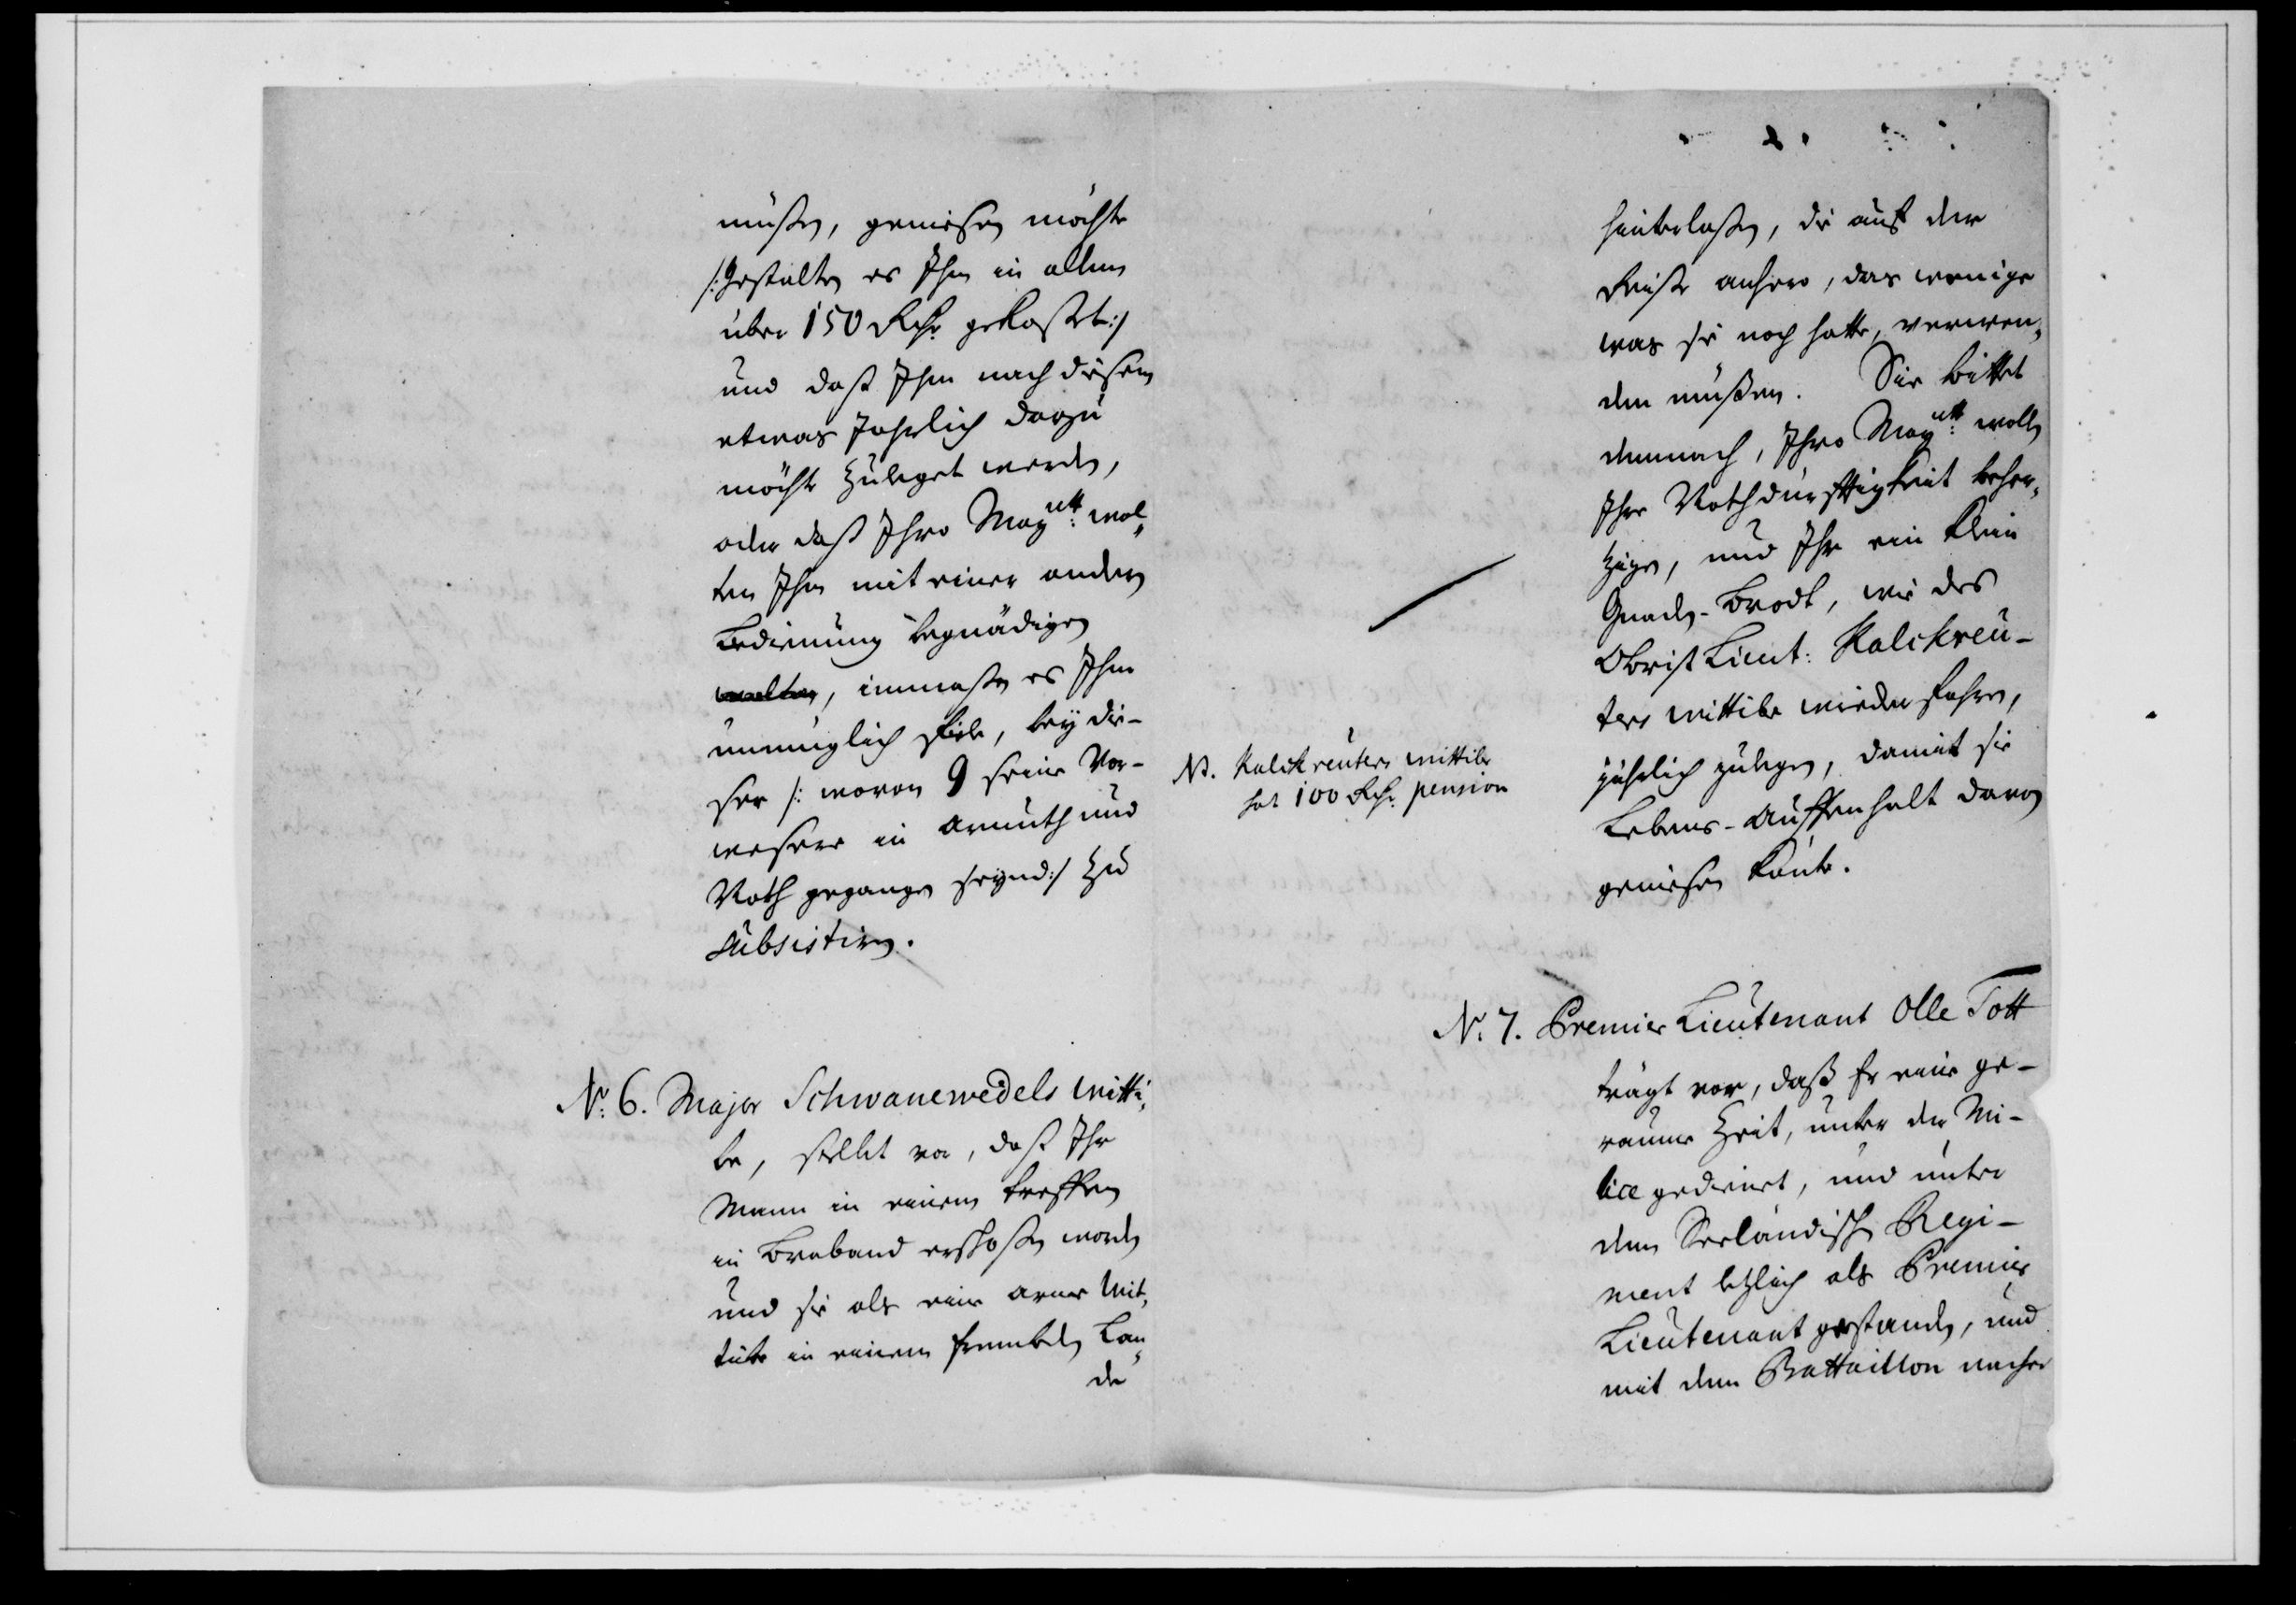 müßen, geniesen möchte
/: Gestalten es Ihm in allem
über 150 Rchr. gekostet :/
und daß Ihm nach diesem
etwas Jährlich darzu
möchte zuleget werden,
oder daß Ihro Maytt: wol„
ten Ihm mit einer andern
Bedienung begnädigen
wolten, immaßen es Ihm
unmüglich fiele, bey die-
ser /: wovon 9 seine Vor-
weser in Armuth und
Noth gegangen seynd :/ zu
subsistiren.
No. 6. Major Schwanewedels Witti„
be, stellet vor, daß Ihr
Mann in einem treffen
in Braband erschoßen worden
und sie als eine arme Wit„
tibe in einem frembden Lan„
de
hinterlaßen, die auf der
Reise anhero, das wenige
was sie noch hatte, verwen„
den müßen. Sie bittet
demnach, Ihro Maytt: wolle
Ihre Nothdürfftigkeit beher„
tzigen, und Ihr ein klein
Gnaden-Brodt, wie des
Obrist Lieut: Kalckreu-
ters Wittibe wiederfahren,
jährlich zulegen, damit sie
Lebens-Auffenhalt davon
geniesen könte.
NB. Kalckreuters Wittibe
hat 100 Rchr. pension
No. 7. Premier Lieutenant Olle Tott
trägt vor, daß Er eine ge-
raume Zeit, unter der Mi-
lice gedienet, und unter
dem Seeländische Regi-
ment letzlich als Premier
Lieutenant gestanden, und
mit dem Battaillon nacher